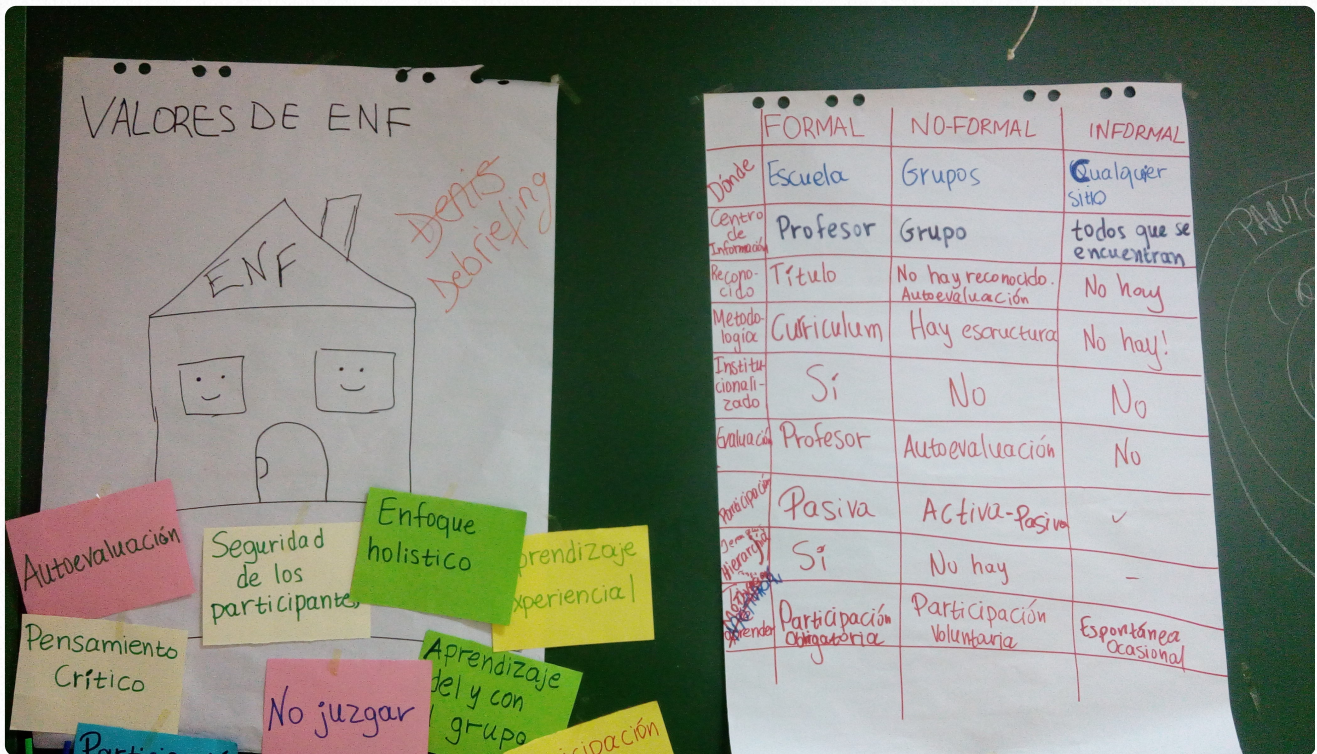 VALORES DE ENF
Denis
Debriefing
ENF
Autoevaluación
Seguridad
de los
participantes
Enfoque
holistico
Pensamiento
Crítico
No juzgar
Aprendizaje
del y con
grupo
FORMAL NO-FORMAL INFORMAL
Dónde Escuela Grupos Cualquier
sitio
Centro
de
Información Profesor Grupo todos que se
encuentran
Recono-
cido Título No hay reconocido.
Autoevaluación No hay
Metodo-
logía Curriculum Hay esructura No hay!
Institu-
cionali-
zado Sí No No
Evaluació Profesor Autoevaluación No
Participación Pasiva Activa-Pasiva ✓
Hierarchia Sí No hay -
aprender Participación
Obligatoria Participación
Voluntaria Espontánea
Ocasional